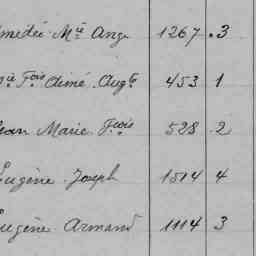 médée Mie Ange 1267 3
Fois Aimé Augte 453 1
Jean Marie Fcois 528 2
Eugène Joseph 1514 4
Eugène Armand 1114 3